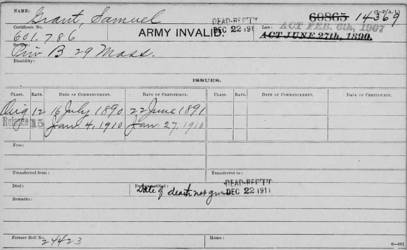 NAME: Grant, Samuel
DEAD-REP'T
60865 14369
Certificate No. 601.786
ARMY INVALID.
DEC 22 191
Law: ACT FEB. 6th, 1907
ACT JUNE 27th, 1890.
B 29 Mass.
Disability:
ISSUES.
CLASS. RATE. DATE OF COMMENCEMENT. DATE OF CERTIFICATE. CLASS. RATE. DATE OF COMMENCEMENT. DATE OF CERTIFICATE.
Orig 12 16 July 1890 22 June 1891
15 Jan. 4, 1910 Jan. 27, 1910
From:
Transferred from: Transferred to:
DEAD-REP'T
Died: Date of death not given DEC 22 191
Remarks:
Former Roll No. 24423
Home: